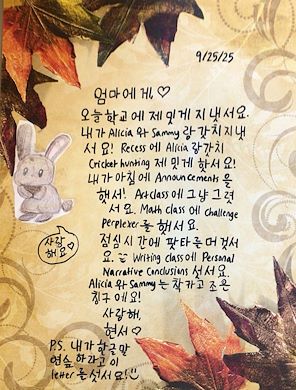 9/25/25
엄마에게, ♡
오늘학교에 제밋게 지냇서요.
내가 Alicia 와 Sammy 랑 갇치지냇
서요! Recess 에 Alicia 랑갇치
Cricket hunting 제밋게 핫서요!
내가아침에 Announcements 을
햇서! Artclass에 그냥 그럿
서요. Math class 에 challenge
Perplexer를 햇서요.
점심시간에 팟타를 머겻서
요. Writing class에 Personal
Narrative Conclusions 섯서요.
Alicia 와 Sammy 는 착가고 조은
칭구에요!
사랑해,
현서♡
사랑
해요♡
P.S. 내가 한글말
연습 하라고 이
letter를 섯서요!